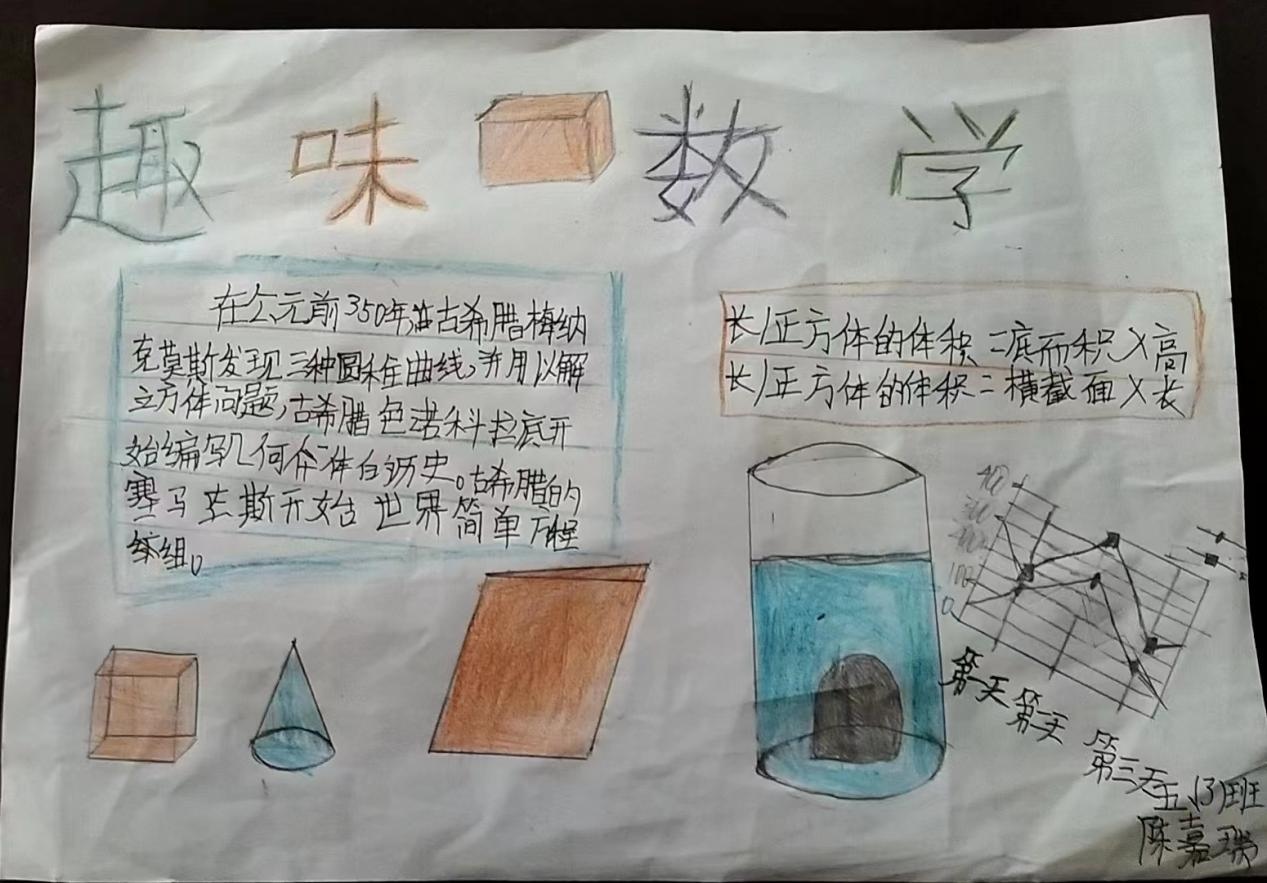 趣味数学
在公元前350年 古希腊梅纳
克莫斯发现三种圆锥曲线,并用以解
立方体问题,古希腊色诺科拉底开
始编写几何 体的历史。古希腊的
塞马 斯开始世界简单方程
组。
长/正方体的体积=底面积×高
长/正方体的体积=横截面×长
100
0
第一天
第二天
第三天
五(3)班
陈嘉瑞